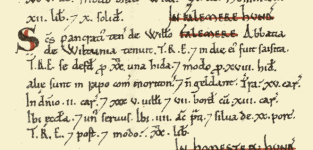 xii. lib. 7 x. solid. IN FALEMERE HVND'
Scs PANCRATI' ten' de Willo FALEMERE. Abbatia
de Wiltunia tenuit. T.R.E. 7 in dñio ei' fuit saisita.
T.R.E. se defd' p. xx. una hida. 7 modo p. xviii. hid'.
aliæ sunt in rapo com' moriton'. 7 ñ geldant. Tra. xv. car'.
In dñio. ii. car'. 7 xxx. v. uilli. 7 vii. bord' cū xiii. car'.
Ibi æccla. 7 un' seruus. Ibi. iiii. ac' p'ti. 7 silua de xx. porc'.
T.R.E. 7 post. 7 modo. xx. lib'.